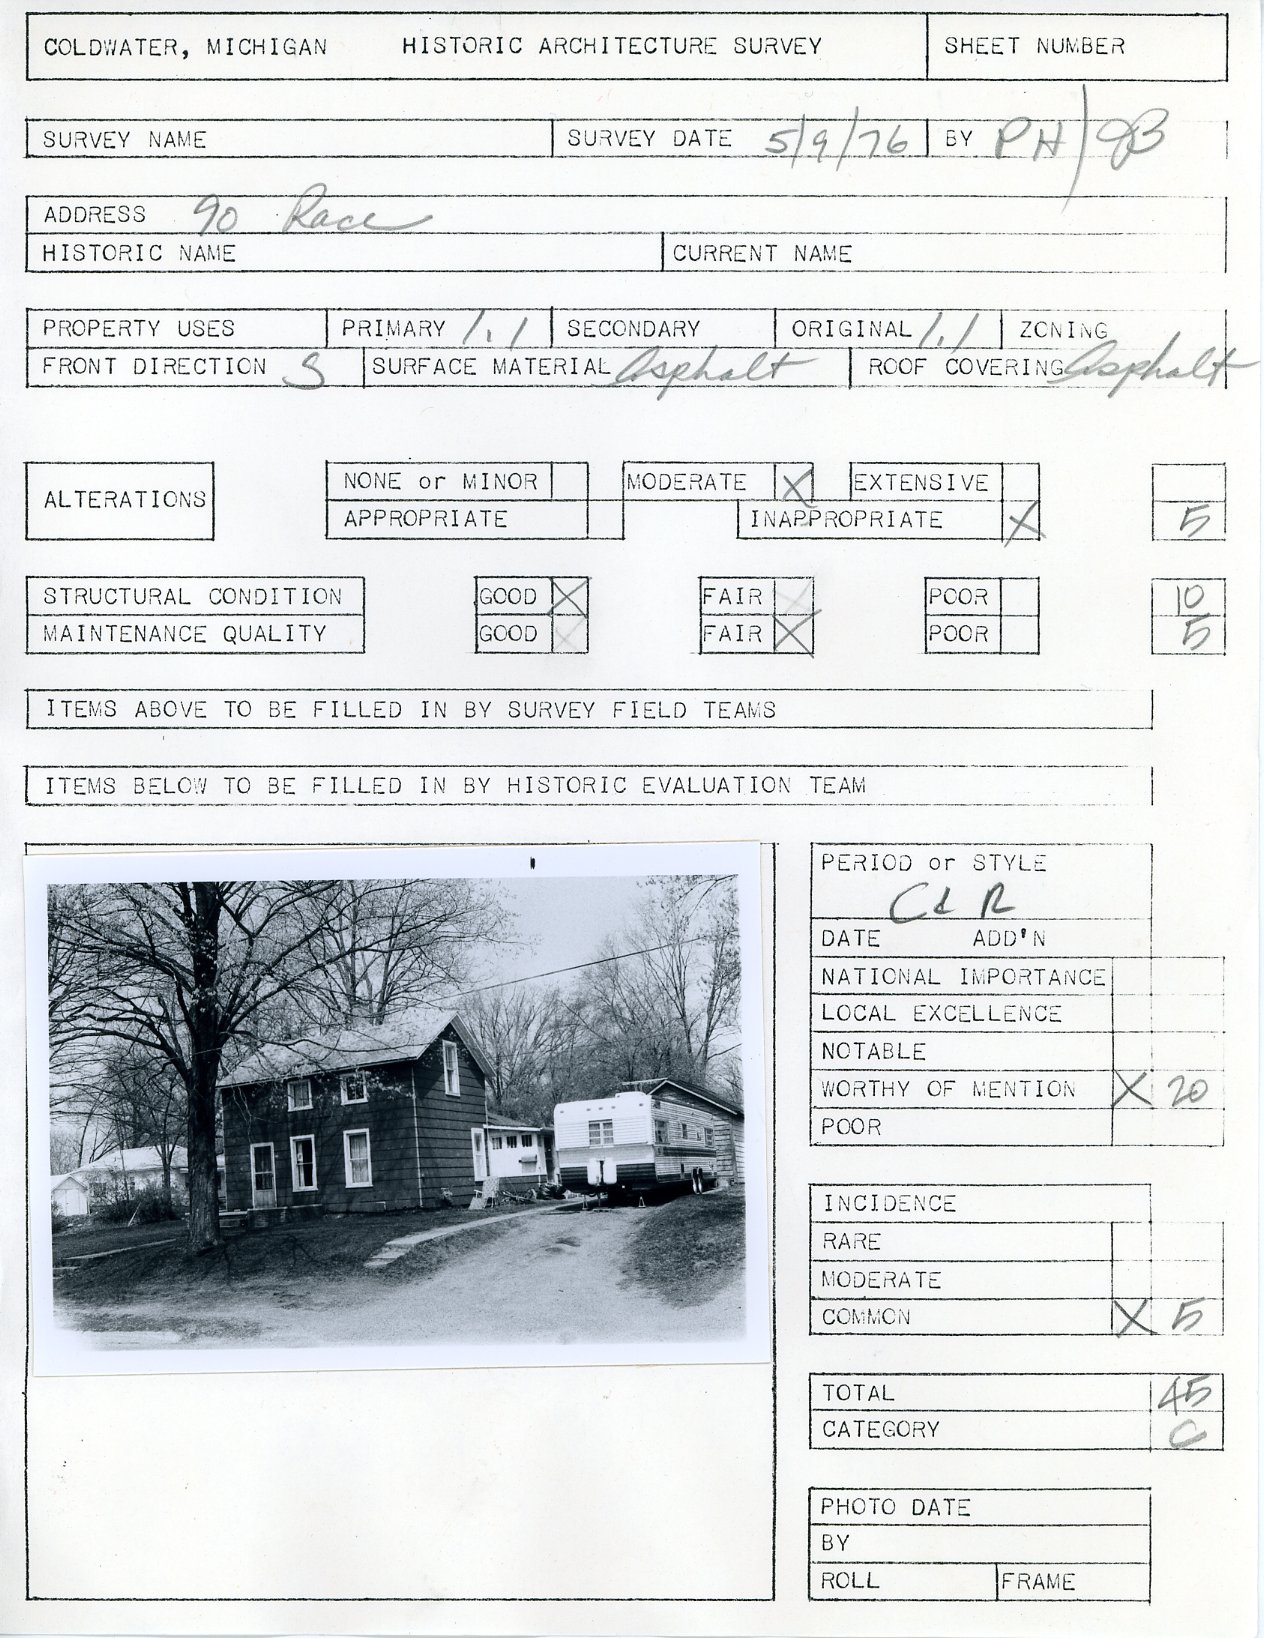 COLDWATER, MICHIGAN HISTORIC ARCHITECTURE SURVEY SHEET NUMBER
SURVEY NAME SURVEY DATE 5/9/76 BY PH/JB
ADDRESS 90 Race
HISTORIC NAME CURRENT NAME
PROPERTY USES PRIMARY 1.1 SECONDARY ORIGINAL 1.1 ZONING
FRONT DIRECTION S SURFACE MATERIAL Asphalt ROOF COVERING Asphalt
ALTERATIONS NONE or MINOR MODERATE X EXTENSIVE
APPROPRIATE INAPPROPRIATE X 5
STRUCTURAL CONDITION GOOD X FAIR POOR 10
MAINTENANCE QUALITY GOOD FAIR X POOR 5
ITEMS ABOVE TO BE FILLED IN BY SURVEY FIELD TEAMS
ITEMS BELOW TO BE FILLED IN BY HISTORIC EVALUATION TEAM
PERIOD or STYLE
DATE ADD'N
NATIONAL IMPORTANCE
LOCAL EXCELLENCE
NOTABLE
WORTHY OF MENTION X 20
POOR
INCIDENCE
RARE
MODERATE
COMMON X 5
TOTAL 45
CATEGORY C
PHOTO DATE
BY
ROLL FRAME